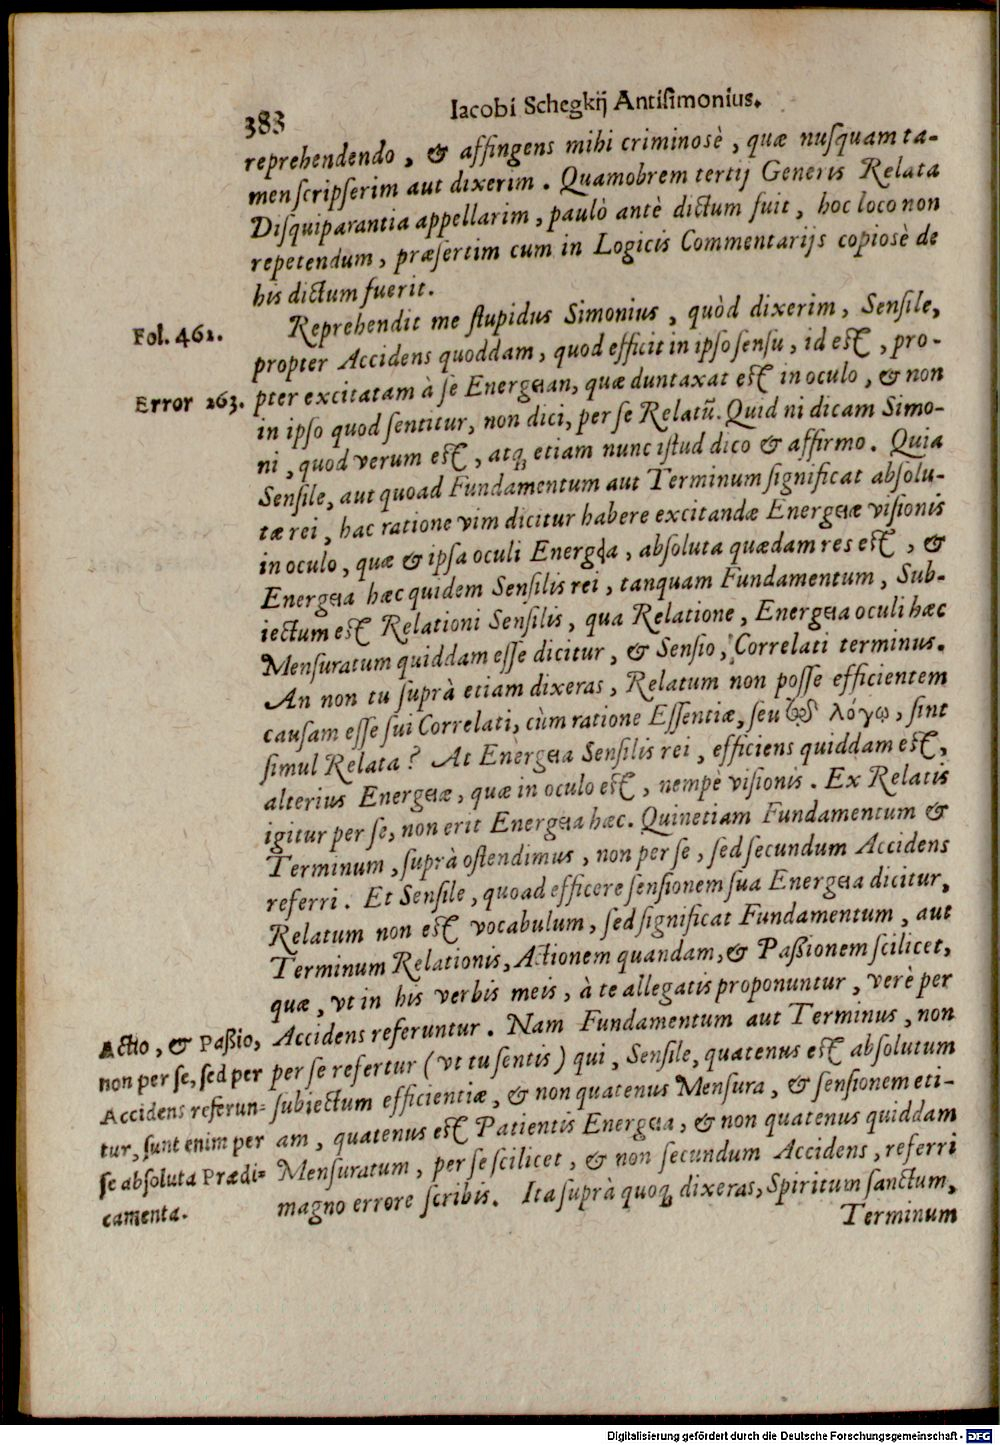 383
Iacobi Schegkij Antisimonius.
reprehendendo, & affingens mihi criminosè, quæ nusquam ta-
men scripserim aut dixerim. Quamobrem tertij Generis Relata
Disquiparantia appellarim, paulò antè dictum fuit, hoc loco non
repetendum, præsertim cum in Logicis Commentarijs copiosè de
his dictum fuerit.
Fol. 461.
Reprehendit me stupidus Simonius, quòd dixerim, Sensile,
propter Accidens quoddam, quod efficit in ipso sensu, id est, pro-
Error 263.
pter excitatam à se Energeian, quæ duntaxat est in oculo, & non
in ipso quod sentitur, non dici, per se Relatū. Quid ni dicam Simo-
ni, quod verum est, atq; etiam nunc istud dico & affirmo. Quia
Sensile, aut quoad Fundamentum aut Terminum significat absolu-
tæ rei, hac ratione vim dicitur habere excitandæ Energeiæ visionis
in oculo, quæ & ipsa oculi Energeia, absoluta quædam res est, &
Energeia hæc quidem Sensilis rei, tanquam Fundamentum, Sub-
iectum est Relationi Sensilis, qua Relatione, Energeia oculi hæc
Mensuratum quiddam esse dicitur, & Sensio, Correlati terminus.
An non tu suprà etiam dixeras, Relatum non posse efficientem
causam esse sui Correlati, cùm ratione Essentiæ, seu τῷ λόγῳ, sint
simul Relata? At Energeia Sensilis rei, efficiens quiddam est,
alterius Energeiæ, quæ in oculo est, nempè visionis. Ex Relatis
igitur per se, non erit Energeia hæc. Quinetiam Fundamentum &
Terminum, suprà ostendimus, non per se, sed secundum Accidens
referri. Et Sensile, quoad efficere sensionem sua Energeia dicitur,
Relatum non est vocabulum, sed significat Fundamentum, aut
Terminum Relationis, Actionem quandam, & Paßionem scilicet,
quæ, vt in his verbis meis, à te allegatis proponuntur, verè per
Accidens referuntur. Nam Fundamentum aut Terminus, non
per se refertur (vt tu sentis) qui, Sensile, quatenus est absolutum
subiectum efficientiæ, & non quatenus Mensura, & sensionem eti-
am, quatenus est Patientis Energeia, & non quatenus quiddam
Mensuratum, per se scilicet, & non secundum Accidens, referri
magno errore scribis. Ita suprà quoq; dixeras, Spiritum sanctum,
Actio, & Paßio,
non per se, sed per
Accidens referun-
tur, sunt enim per
se absoluta Prædi-
camenta.
Terminum
Digitalisierung gefördert durch die Deutsche Forschungsgemeinschaft - DFG